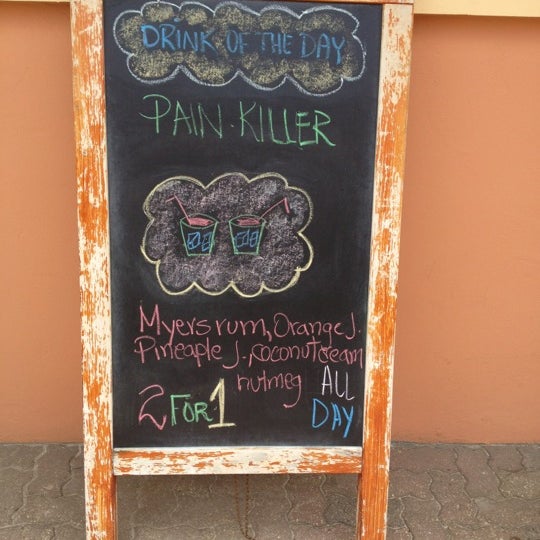 DRINK OF THE DAY
PAIN-KILLER
Myers rum, Orange J.
Pineapple J., coconut cream
nutmeg ALL
2 FOR 1 DAY